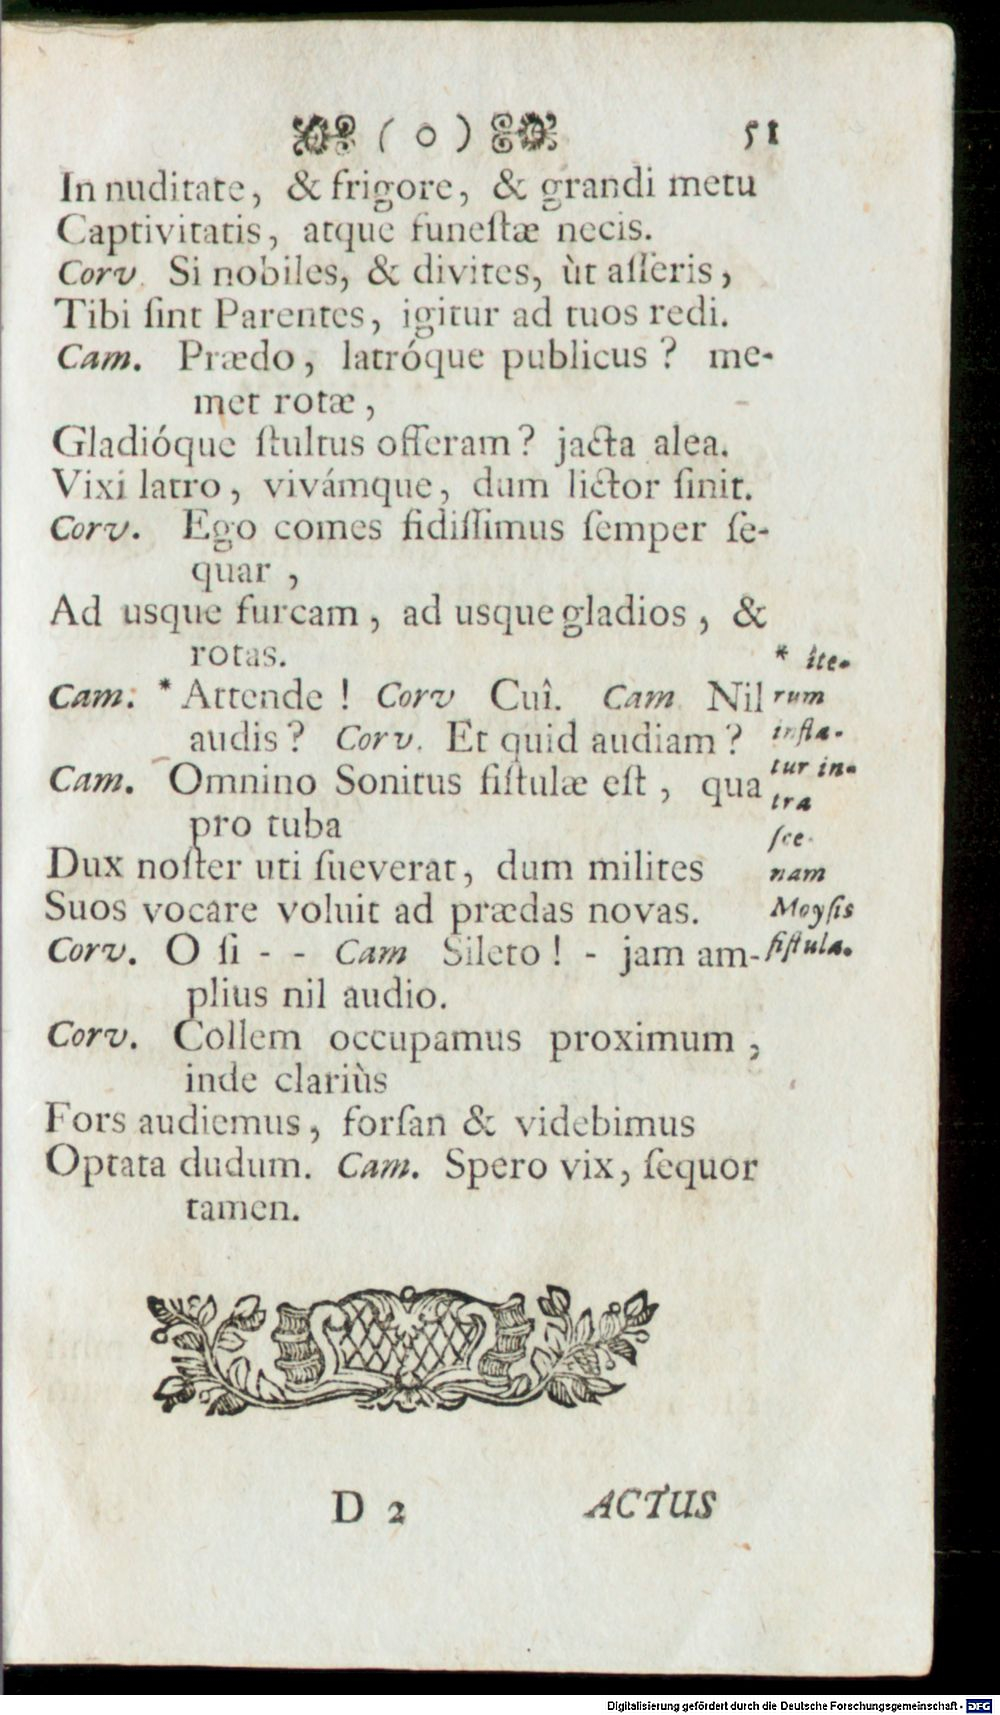 ( o ) 51
In nuditate, & frigore, & grandi metu
Captivitatis, atque funeſtæ necis.
Corv. Si nobiles, & divites, ùt aſſeris,
Tibi ſint Parentes, igitur ad tuos redi.
Cam. Prædo, latróque publicus? me-
met rotæ,
Gladióque ſtultus offeram? jacta alea.
Vixi latro, vivámque, dum lictor ſinit.
Corv. Ego comes fidiſſimus ſemper ſe-
quar,
Ad usque furcam, ad usque gladios, &
rotas.
Cam. * Attende! Corv Cuî. Cam Nil
audis? Corv. Et quid audiam?
Cam. Omnino Sonitus fiſtulæ eſt, qua
pro tuba
Dux noſter uti ſueverat, dum milites
Suos vocare voluit ad prædas novas.
Corv. O ſi - - Cam Sileto! - jam am-
plius nil audio.
Corv. Collem occupamus proximum,
inde clariùs
Fors audiemus, forſan & videbimus
Optata dudum. Cam. Spero vix, ſequor
tamen.
* ite-
rum
infla-
tur in-
tra
ſce-
nam
Moyſis
fiſtula.
D 2 ACTUS
Digitalisierung gefördert durch die Deutsche Forschungsgemeinschaft - DFG